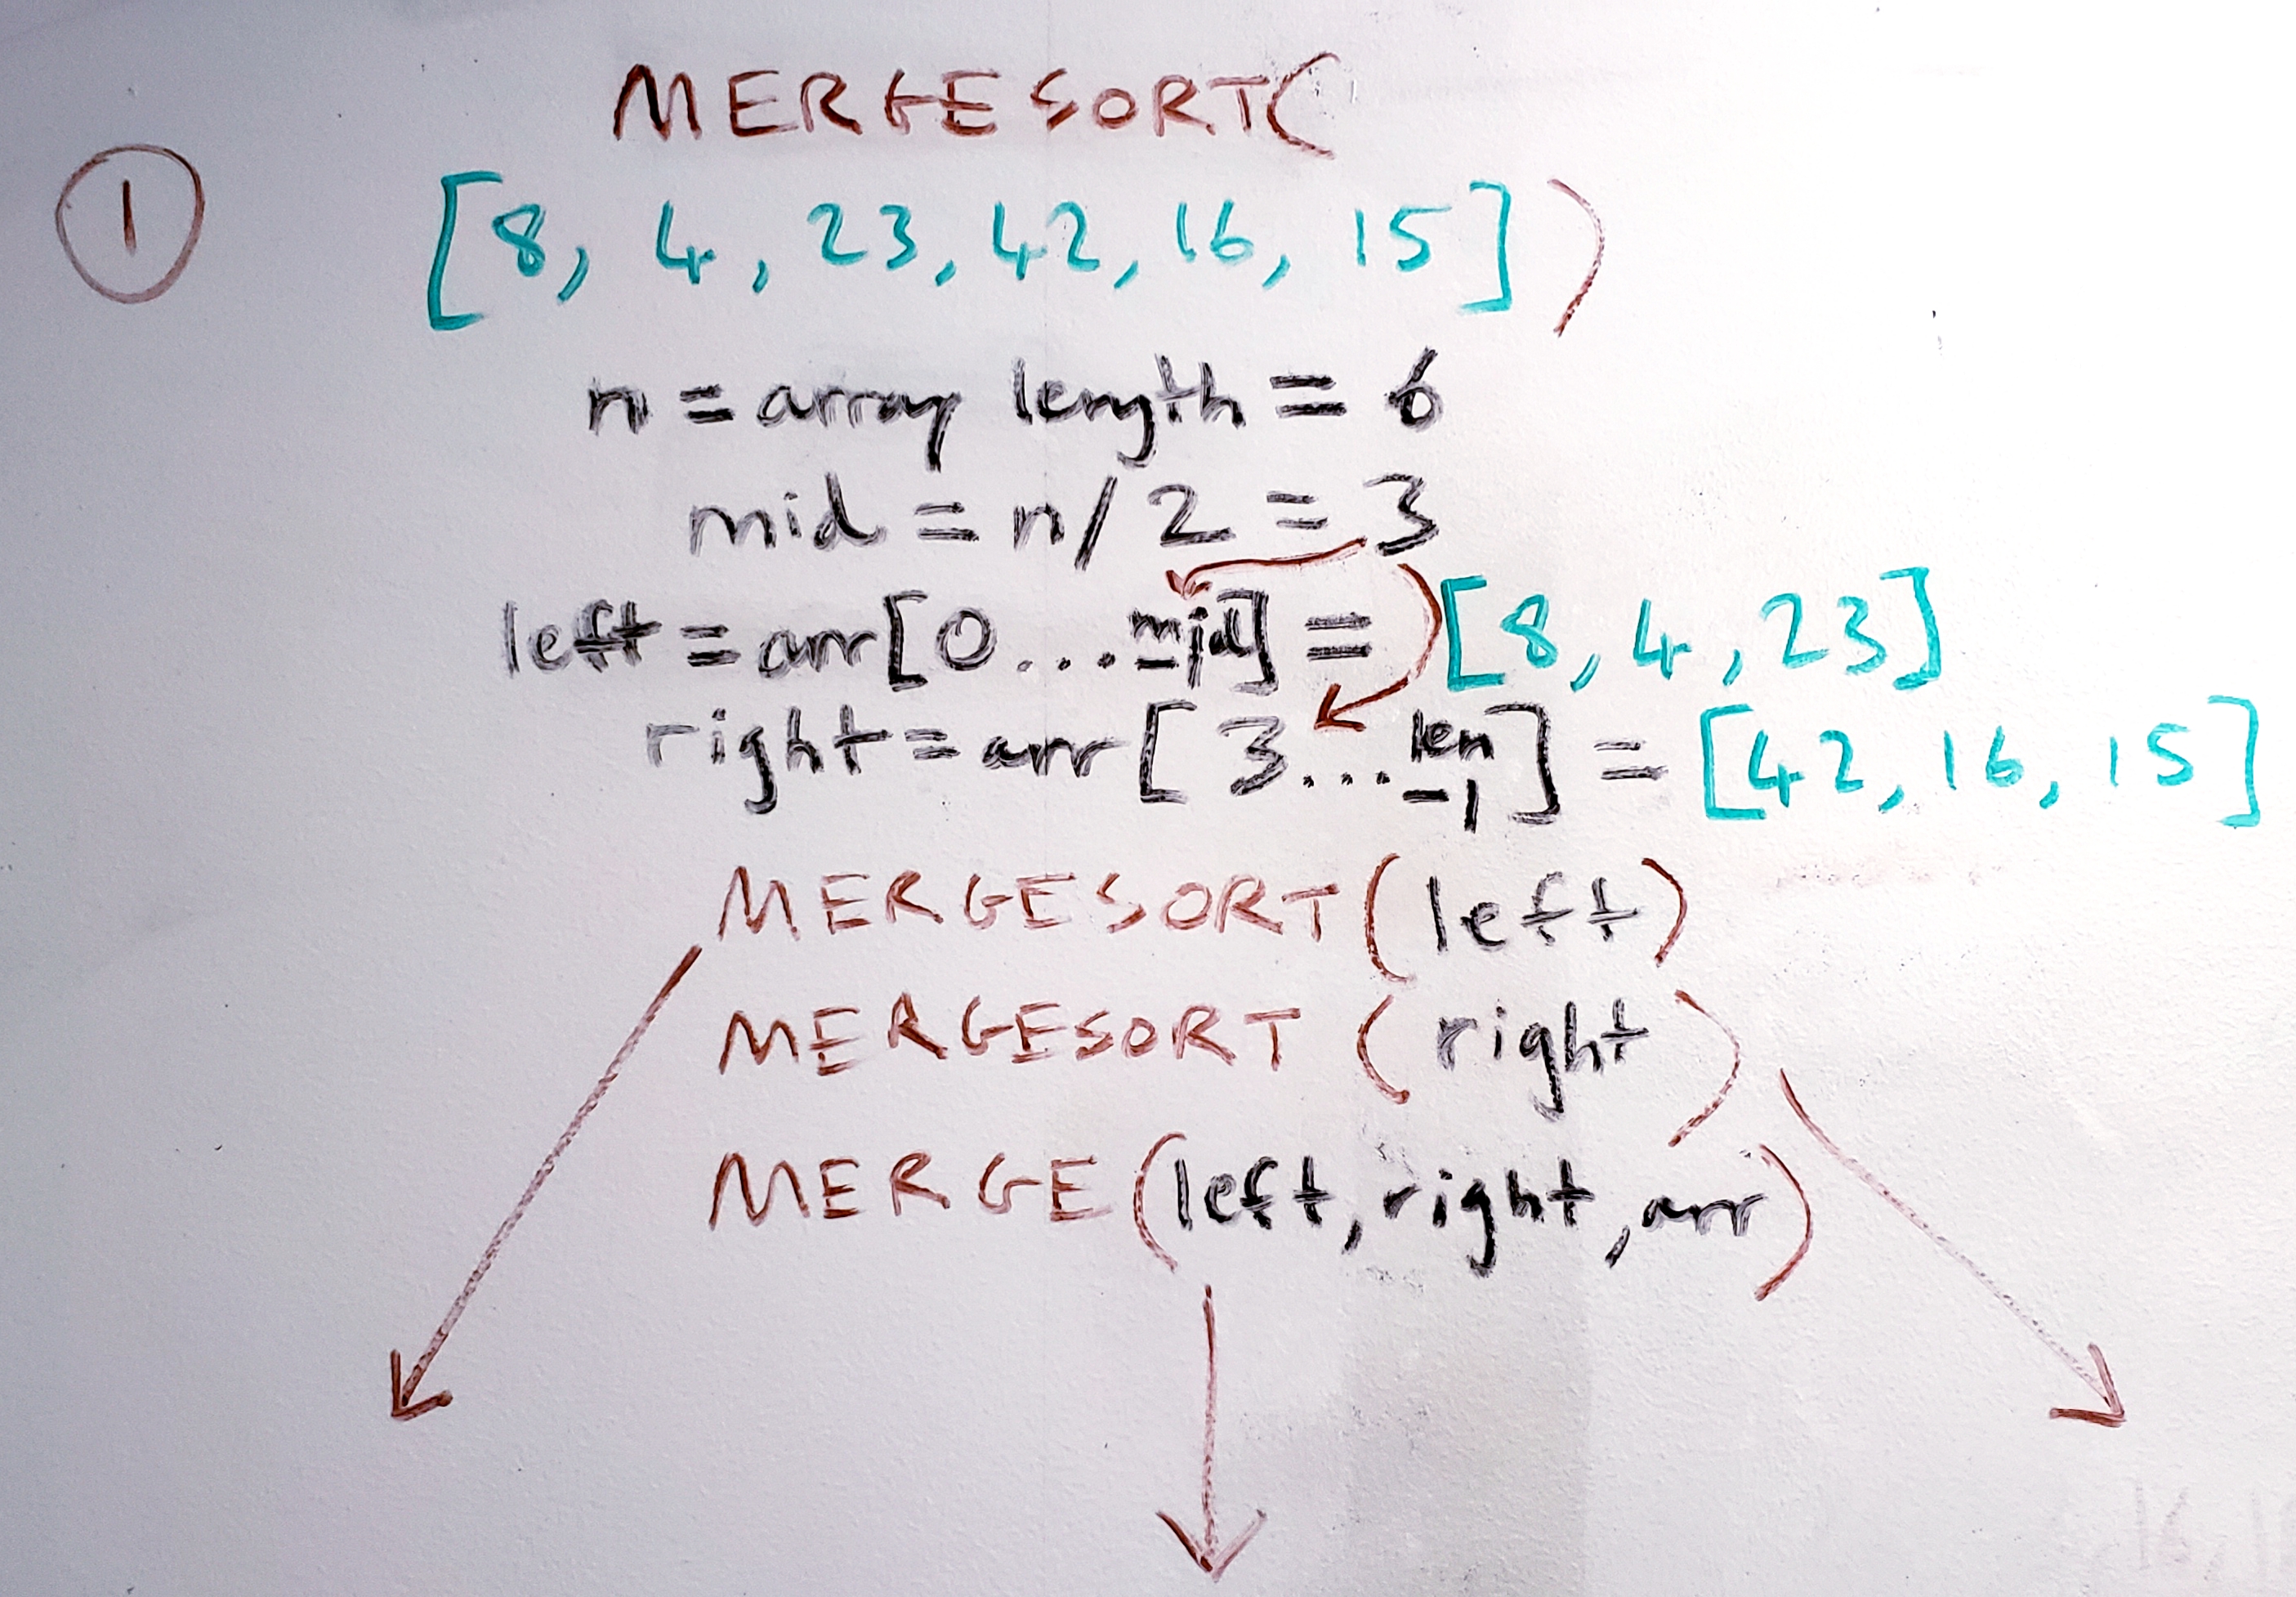 MERGESORT(
1
[8, 4, 23, 42, 16, 15])
n = array length = 6
mid = n/2 = 3
left = arr[0...mid-1] = [8, 4, 23]
right = arr[3...len-1] = [42, 16, 15]
MERGESORT(left)
MERGESORT(right)
MERGE(left, right, arr)